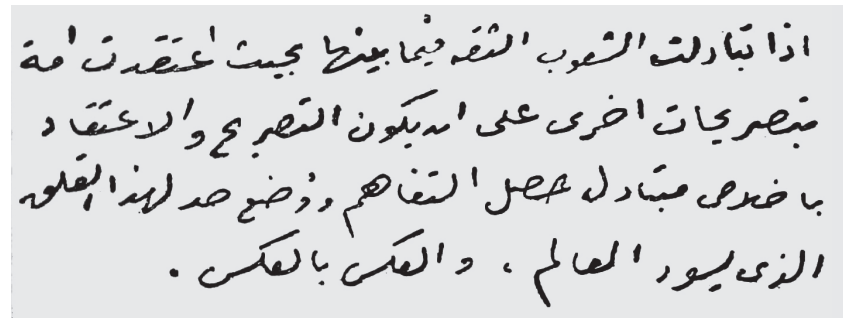 اذا تبادلت الشعوب الثقه فيما بينها بحيث اعتقدت امة
بتصريحات اخرى على ان يكون التصريح والاعتقاد
باخلاص متبادل حصل التفاهم ووضع حد لهذا القلق
الذى يسود العالم ، والعكس بالعكس .